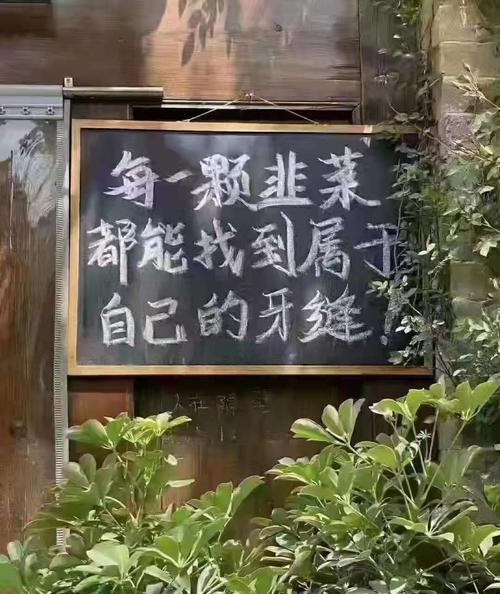 每一颗韭菜
都能找到属于
自己的牙缝!